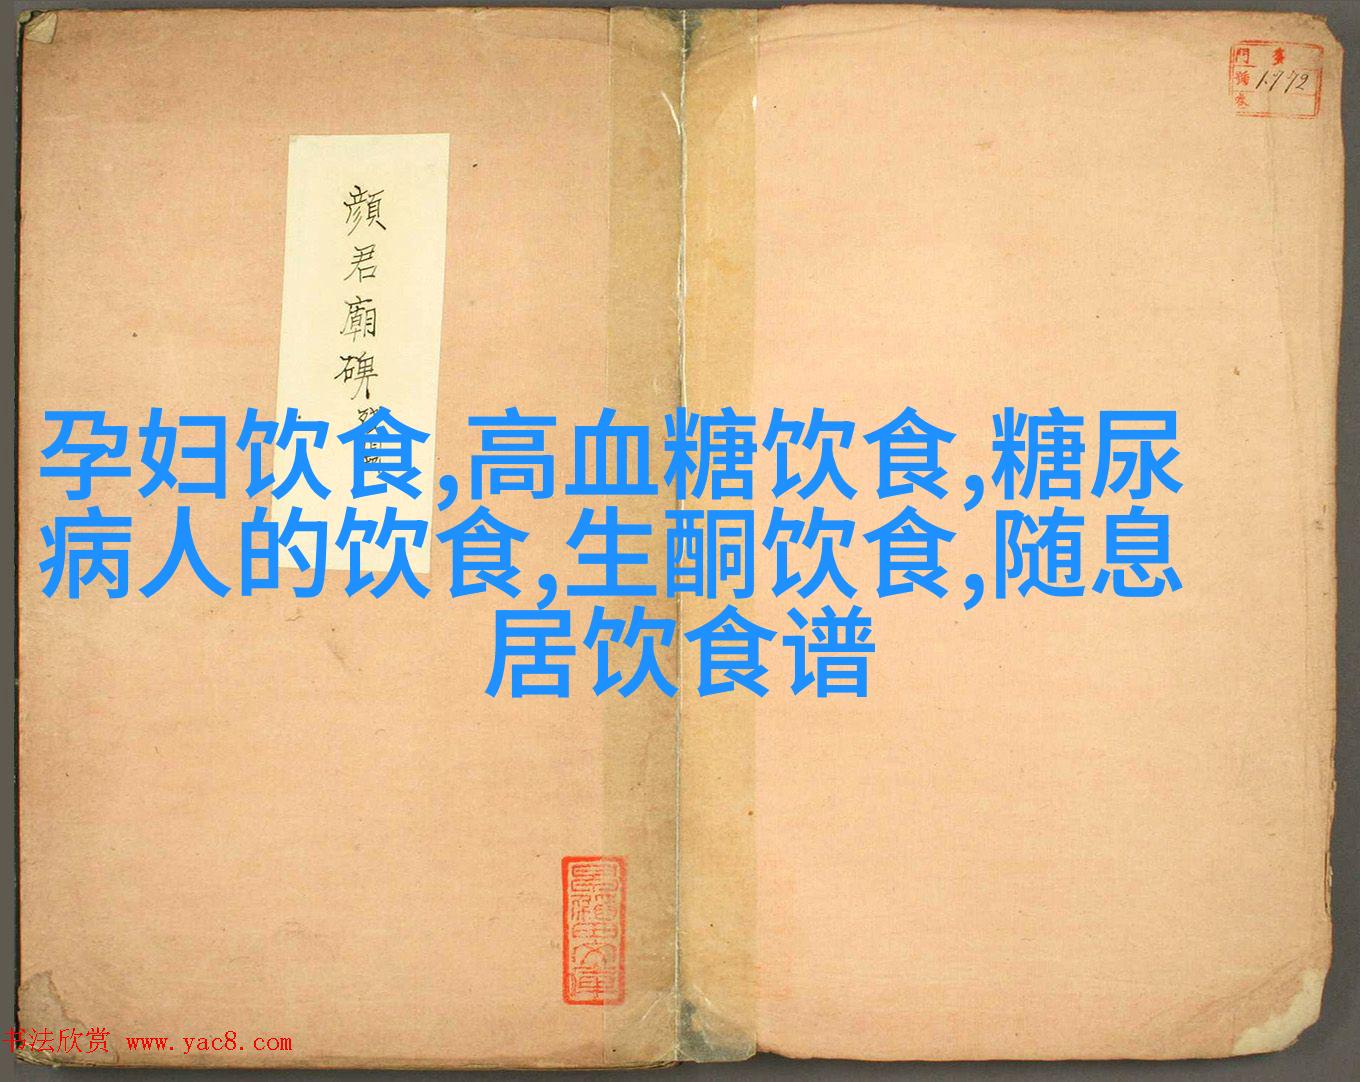 門 第
號 1772
卷
顔君廟碑
孕妇饮食,高血糖饮食,糖尿
病人的饮食,生酮饮食,随息
居饮食谱
书法欣赏 www.yac8.com